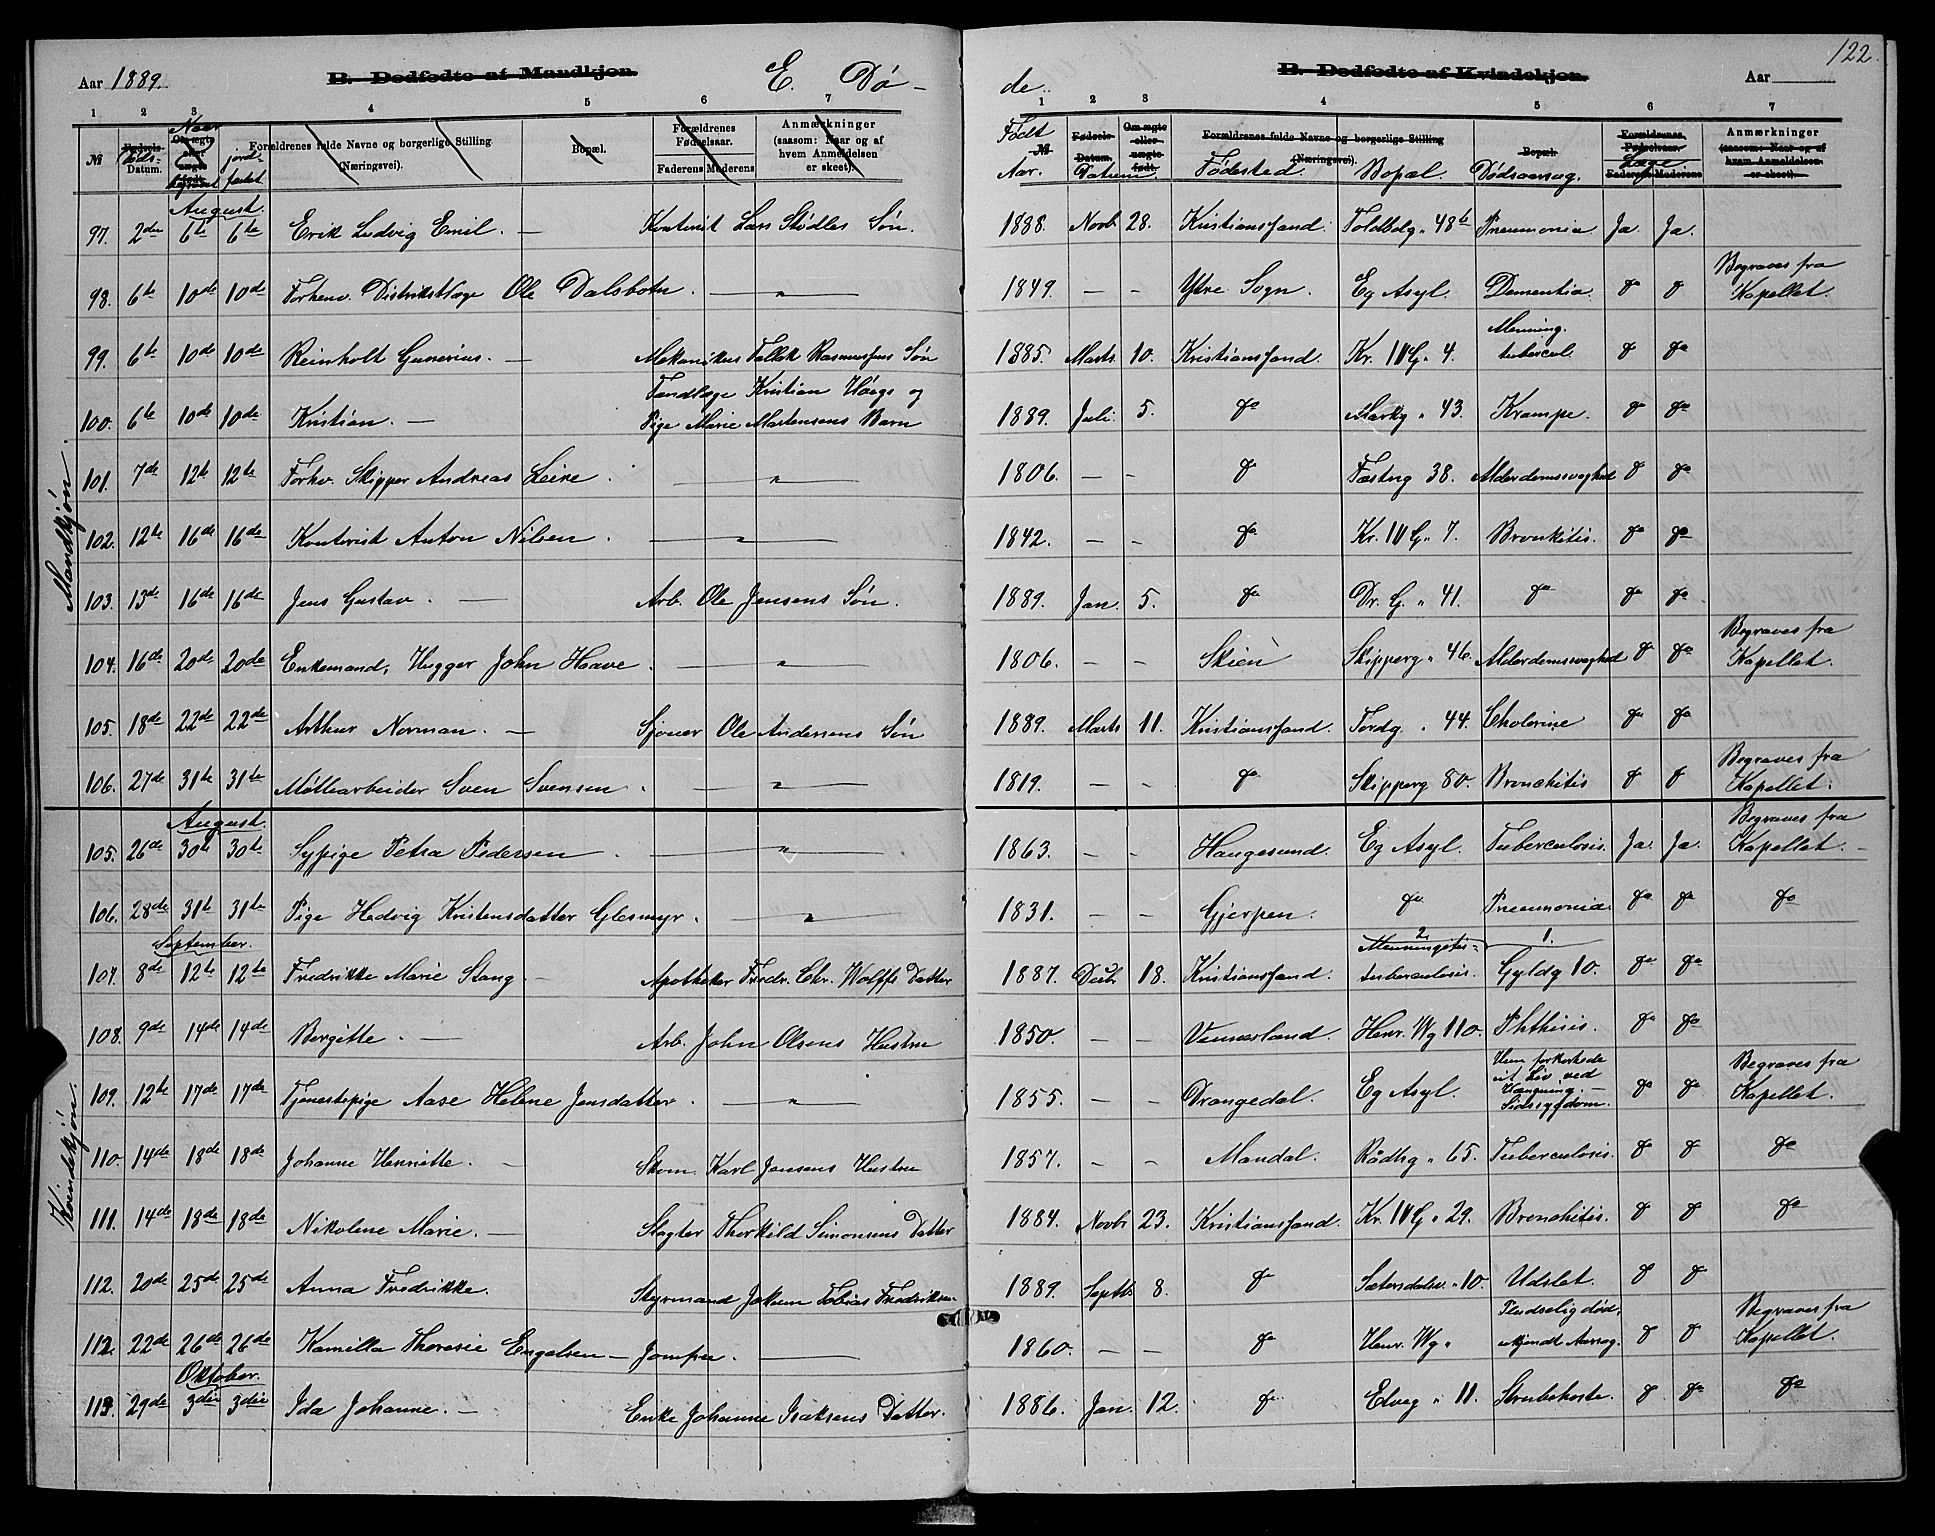 122.
Aar 1889. B. Dødfødte af Mandkjøn. E. Dø-
de. B. Dødfødte af Kvindekjøn. Aar
1 2 3 4 5 6 7
1 2 3 4 5 6 7
№ Datum. Naar Forældrenes fulde Navne og borgerlige Stilling (Næringsvei). Bopæl. Forældrenes Fødselsaar. Faderens Moderens Anmærkninger (saasom: Naar og af hvem Anmeldelsen er skeet).
Født Aar. Datum. Forældrenes fulde Navne og borgerlige Stilling (Næringsvei). Fødested Bopæl. Dødsaarsag. Læge Anmærkninger (saasom: Naar og af hvem Anmeldelsen er skeet).
Mandkjøn.
August.
97. 2den 6te 6te Erik Ludvig Emil. — Kontorist Lars Stødles Søn. 1888. Novb. 28. Kristianssand. Toldbdg. 48b Pneumonia Ja. Ja.
98. 6te 10de 10de Forhenv. Distriktslæge Ole Dalsbotn. — " — 1849. — — Ytre Sogn. Eg Asyl. Dementia. do do Begraves fra Kapellet.
99. 6te 10de 10de Reinholt Gunerius. — Mekanikus Falkk Rasmussens Søn 1885. Marts 10. Kristianssand. Kr. IV G. 4. Menning. tubercul. do do
100. 6te 10de 10de Kristian. — Tandlæge Kristian Høegs og Pige Marie Martensens Barn 1889. Juli. 5. do Markg. 43. Krampe. do do
101. 7de 12te 12te Forhv. Skipper Andreas Leire. — " — 1806. — — do Fæstng 38. Alderdomssvaghed do do
102. 12te 16de 16de Kontorist Anton Nilsen. — " — 1842. — — do Kr. IV G. 7. Bronkitis. do do
103. 13de 16de 16de Jens Gustav. — Arb. Ole Jensens Søn. 1889. Jan. 5. do Dr. G. " 41. do do do
104. 16de 20de 20de Enkemand, Hugger John Haave. — " — 1806. — — Skien Skipperg. 46. Alderdomssvaghed do do Begraves fra Kapellet.
105. 18de 22de 22de Arthur Norman. — Sjømer Ole Andersens Søn 1889. Marts 11. Kristianssand. Tordg. 44. Cholerine do do
106. 27de 31te 31te Møllearbeider Sven Svensen. — " — 1819. — — do Skipperg 80. Bronchitis do do Begraves fra Kapellet.
Kvindekjøn.
August.
105. 26de 30te 30te Sypige Petra Pedersen. — " — 1863. — — Haugesund. Eg Asyl. Tuberculosis. Ja. Ja. Begraves fra Kapellet. —
106. 28de 31te 31te Pige Hedvig Kristensdatter Glesmyr. — " — 1831. — — Gjerpen. do Pneumonia do do do
September.
107. 8de 12te 12te Fredrikke Marie Stang — Apotheker Fredr. Chr. Wolffs Datter 1887. Decbr 18. Kristianssand. 2. Menningitis tuberculosis. 1. Gyldg 10. do do
108. 9de 14de 14de Bergitte. — Arb. John Olsens Hustru 1850. — — Vennerland. Henr. Wg 110. Phthisis. do do
109. 12te 17de 17de Tjenestepige Aase Helene Jensdatter. — " — 1855. — — Drangedal. Eg Asyl. Hun forkortede sit Liv ved Hængning. — Sidssygdom. do do Begraves fra Kapellet.
110. 14de 18de 18de Johanne Henriette. — Skom. Karl Jensens Hustru 1857. — — Mandal. Rådhg " 65. Tuberculosis. do do do
111. 14de 18de 18de Nikolene Marie. — Slagter Thorkild Simonsens Datter 1884. Novbr 23. Kristianssand. Kr. IV G. 29. Bronchitis. do do do
112. 20de 25de 25de Anna Fredrikke. Styrmand Jakum Tobias Fredriksen 1889. Septb 8. do Sætersdalsv. " 10. Udslet. do do
112. 22de 26de 26de Kamilla Theresie Engelsen — Jomfru. — 1860. — — do Henr. Wg " Pludselig død, ukjendt Aarsag. do do Begraves fra Kapellet.
Oktober.
113. 29de 3die 3die Ida Johanne. — Enke Johanne Isaksens Datter. 1886. Jan. 12. do Elveg " 11. Strubehoste. do do do